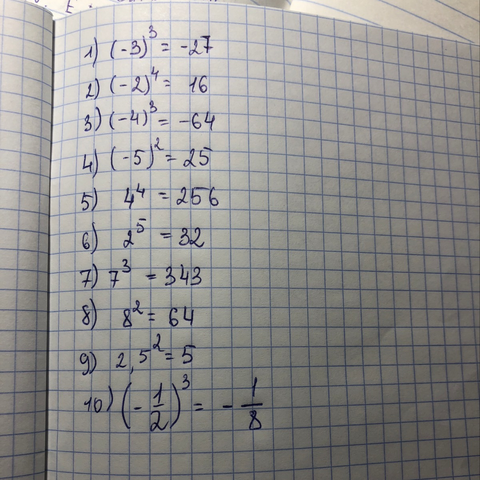 1) (-3)³ = -27
2) (-2)⁴ = 16
3) (-4)³ = -64
4) (-5)² = 25
5) 4⁴ = 256
6) 2⁵ = 32
7) 7³ = 343
8) 8² = 64
9) 2,5² = 5
10) (-1/2)³ = -1/8